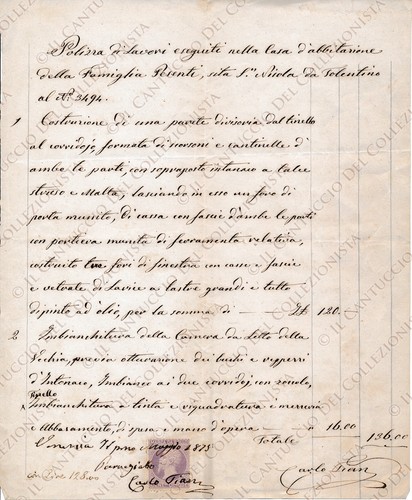 Polizza di Lavori eseguiti nella Casa d'abbitazione
della Famiglia sita S.n Nicola da Tolentino
al N.o 3494.
1 Costruzione di una parete divisoria dal tinello
al corridojo, formata di scorsoni e cantinelle d'
ambo le parti, con sopraposto intonaco a calce
e Malta, lasciando in esso un foro di
porta munito, di cassa con fascie d'ambe le parti
con portieva munita di ferramenta relativa,
costruito tre fori di finestra con casse e fascie
e vetrate di larice a lastre grandi e tutto
dipinto ad'olio, per la somma di — 120.
2 Imbianchitura della Camera da Letto della
Vecchia, previa otturazione dei buchi e
d'Intonaco, Imbianco ai due corridoj con
Imbianchitura a tinta e riquadratura
e Abbassamento, di spesa e mano d'opera — 16.00
Totale 136.00
Venezia Maggio 1873
Carlo
Carlo
© CANTUCCIO DEL COLLEZIONISTA